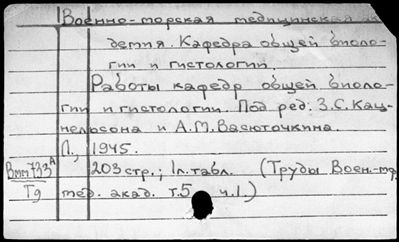 Военно-морская медицинская ака-
демия. Кафедра общей биоло-
гии и гистологии.
Работы кафедр общей биоло-
гии и гистологии. Под ред: З.С. Кац-
нельсона и А.М. Васюточкина.
Л., 1945.
203 стр.; 1 л. табл. (Труды Воен.-мор.
мед. акад. т.5 ч.1.)
Вмт733А
Тд